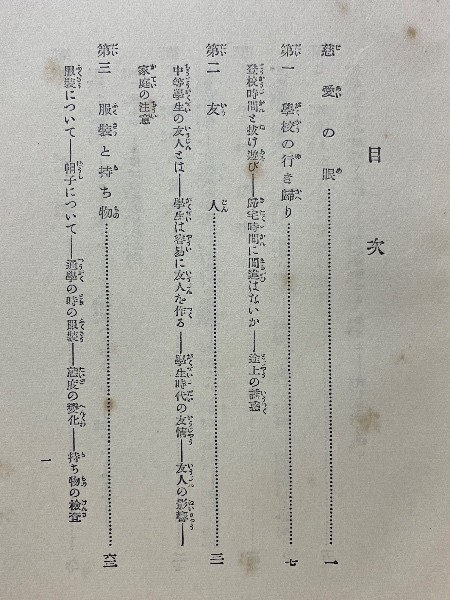 目次
慈愛の眼……一
第一 學校の行き歸り……七
登校時間と抜け遊び――歸宅時間に間違はないか――途上の誘惑
第二 友人……三一
中等學生の友人とは――學生は容易に友人を作る――學生時代の友情――友人の影響――
家庭の注意
第三 服裝と持ち物……六三
服裝について――帽子について――通學の時の服裝――態度の變化――持ち物の檢査
一